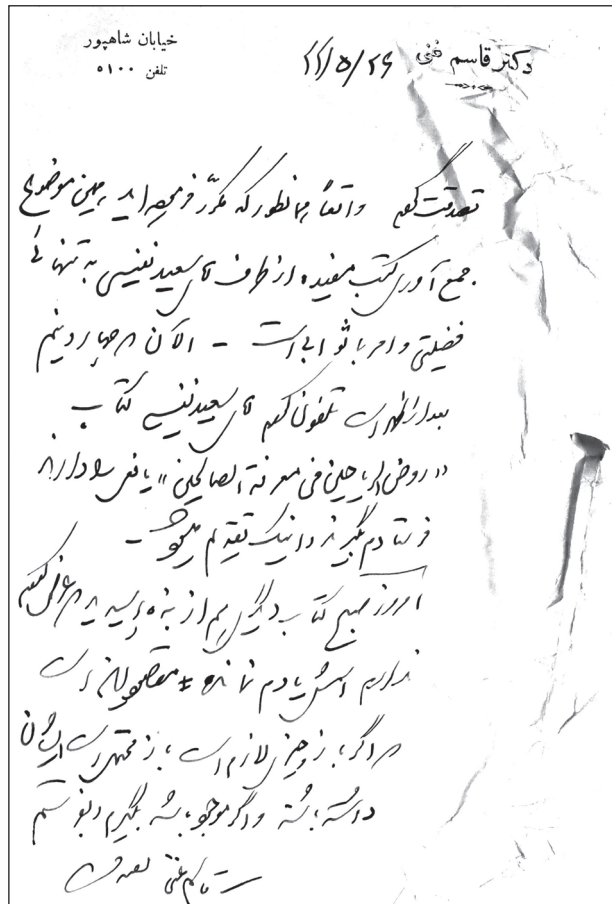 دکتر قاسم غنی
خیابان شاهپور
تلفن ۵۱۰۰
۲۲/۵/۲۶
تصدقت گردم واقعاً همانطور که مکرّر فرموده‌اید همین موضوع
جمع آوری کتب مفیده از طرف آقای سعید نفیسی به تنهائی
فضیلتی و امر با ثوابی است - الآن در چهار و نیم
بعد از ظهر است تلفون کردم آقای سعید نفیسی کتاب
«روض الریاحین فی معرفة الصالحین» یافعی را دارند
فرستادم بگیرند و اینک تقدیم میشود -
امروز صبح کتاب دیگری هم از بنده پرسیدید عرض کردم
ندارم اسمش یادم نمانده مقصود این است
که اگر باز چیزی لازم است باز محتمل است ایشان
داشته باشند و اگر موجود باشد بگیرم و بفرستم
قاسم غنی